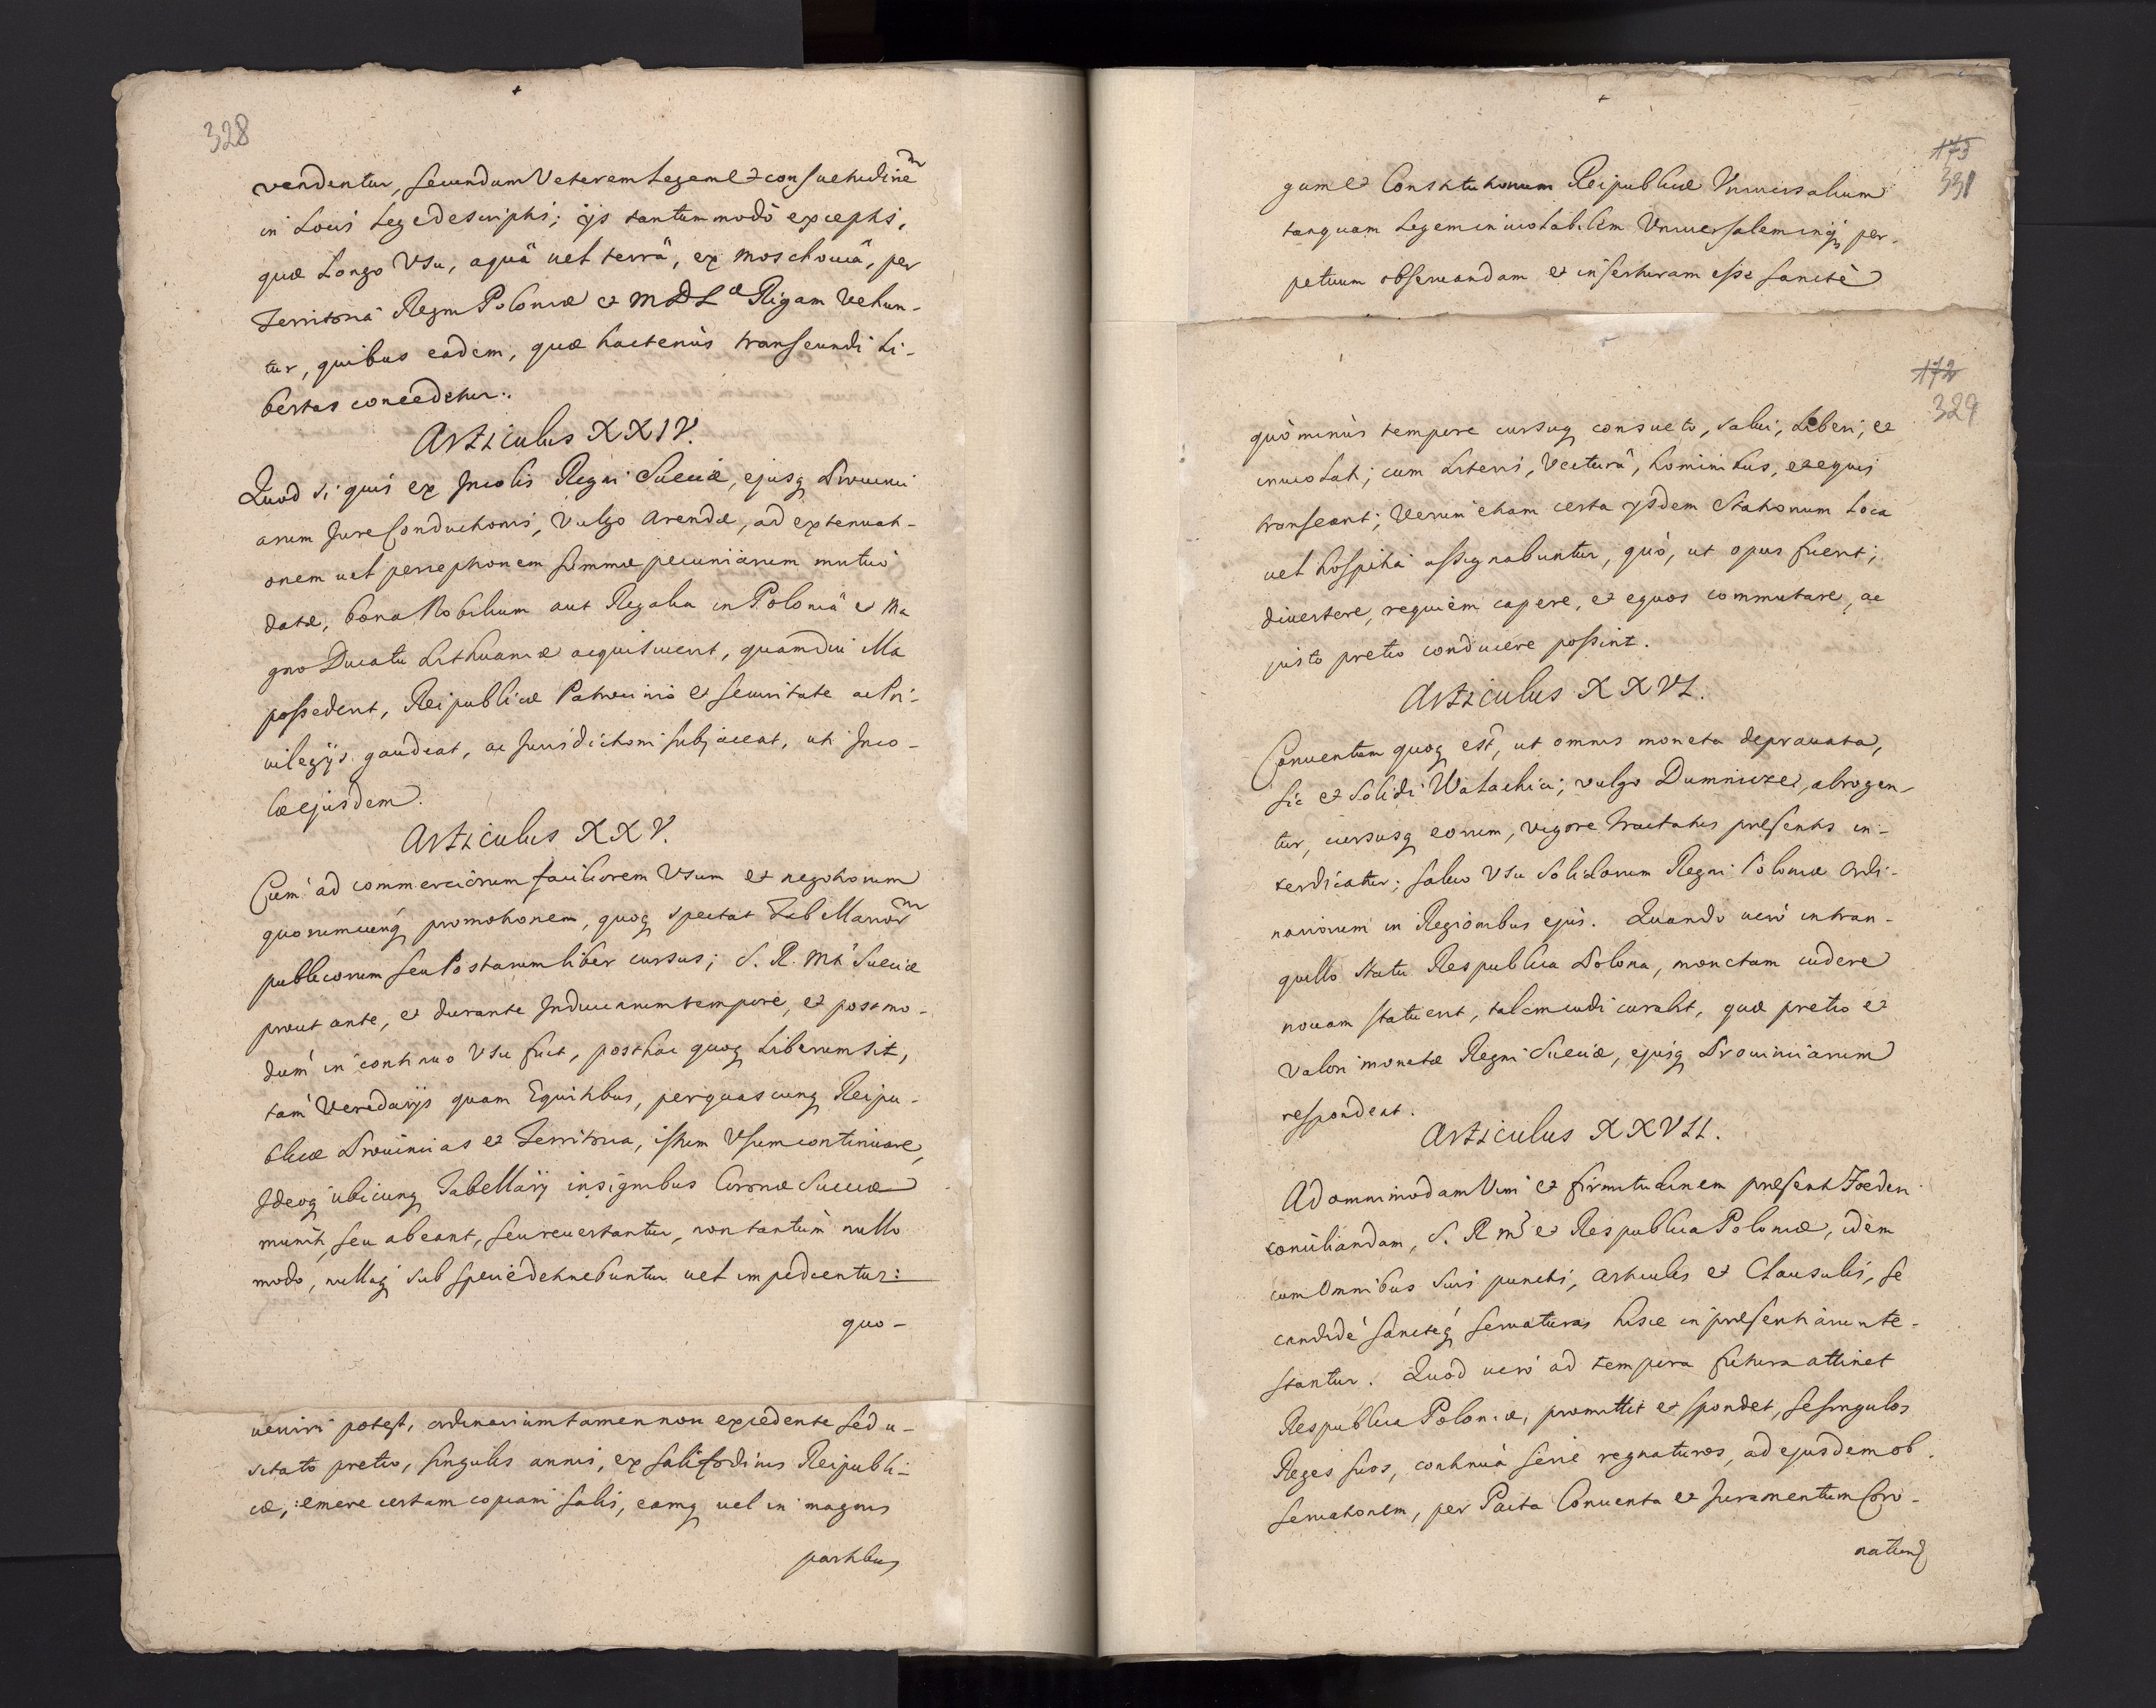 328
vendentur, secundum Veterem Legem et consuetudine
in Locis Lege descriptis; ijs tantummodò exceptis,
quæ Longo Usu, aquâ vel terrâ, ex Moschoviâ, per
Territoria Regni Poloniæ et MDL Rigam vehun-
tur, quibus eadem, quæ hactenùs transeundi Li-
bertas concedetur.
Articulus XXIV.
Quod si quis ex Incolis Regni Sueciæ, ejusq Provinci
arum Jure Conductionis, Vulgo Arendæ, ad extenuati-
onem vel perceptionem summæ pecuniarum mutuò
datæ, bona Nobilium aut Regalia in Poloniâ et Ma
gno Ducatu Lithuaniæ acquisiverit, quamdiu illa
possederit, Reipublicæ Patrocinio et securitate ac Pri-
vilegijs gaudeat, ac Jurisdictioni subjaceat, uti Inco-
læ ejusdem.
Articulus XXV.
Cum ad commerciorum faciliorem Usum et negotiorum
quorumcunq promotionem, quoq spectat Tabellarior
publicorum seu Postarum liber cursus; S. R. Mti Sueciæ
prout ante, et durante Induciarum tempore, et postmo-
dum in continuo Usu fuit, posthac quoq Liberum sit,
tam Veredarijs quam Equitibus, per quascunq Reipu-
blicæ Provincias et Territoria, istum Usum continuare,
Ideoq ubicunq Tabellarij insignibus Coronæ Sueciæ
muniti, seu abeant, seu revertantur, non tantùm nullo
modo, nullaq sub specie detinebuntur vel impedientur:
quo-
veniri potest, ordinarium tamen non excedente sed u-
sitato pretio, singulis annis, ex salifodinis Reipubli-
cæ, emere certam copiam salis, eamq vel in magnis
partibus
173
331
gum et Constitutionum Reipublicæ Universalium
tanquam Legem inviolabilem Universalem inq per-
petuum observandam et inserturam esse sanctè
172
329
quòminùs tempore cursuq consueto, salvi, Liberi, et
inviolati, cum Literis, Vecturâ, hominibus, et equis
transeant; Verum etiam certa ijsdem Stationum Loca
vel hospitia assignabuntur, quò, ut opus fuerit,
divertere, requiem capere, et equos commutare, ac
justo pretio conducere possint.
Articulus XXVI.
Conventum quoq est, ut omnis moneta depravata,
sic et Solidi Walachici, vulgo Dumnicze, abrogen-
tur, cursusq eorum, vigore Tractatus præsentis in-
terdicatur; salvo Usu Solidorum Regni Poloniæ Ordi-
nariorum in Regionibus ejus. Quando verò in tran-
quillo statu Respublica Polona, monetam cudere
novam statuerit, talem cudi curabit, quæ pretio et
Valori monetæ Regni Sueciæ, ejusq Provinciarum
respondeat.
Articulus XXVII.
Ad omnimodam Vim et firmitudinem præsenti Foederi
conciliandam, S. R. M et Respublica Poloniæ, idem
cum Omnibus suis punctis, articulis et Clausulis, se
candidè sanctèq servaturas hisce in præsentiarum te-
stantur. Quod verò ad tempora futura attinet
Respublica Poloniæ, promittit et spondet, se singulos
Reges suos, continuâ serie regnaturos, ad ejusdem ob-
servationem, per Pacta Conventa et Juramentum Coro-
nationis